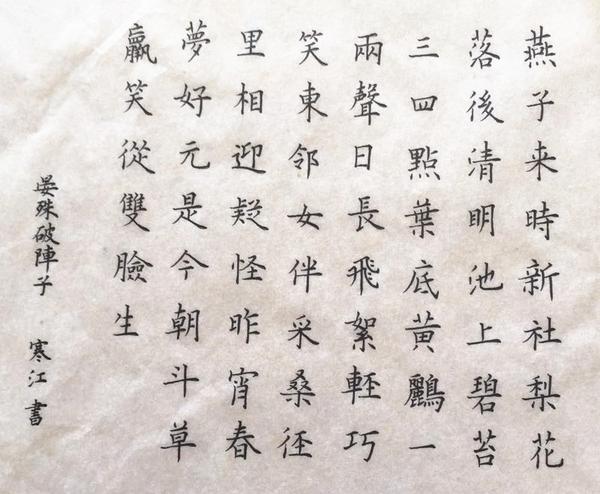 燕子来時新社梨花
落後清明池上碧苔
三四點葉底黃鸝一
兩聲日長飛絮輕巧
笑東邻女伴采桑徑
里相迎疑怪昨宵春
夢好元是今朝斗草
贏笑從雙臉生
晏殊破陣子 寒江書